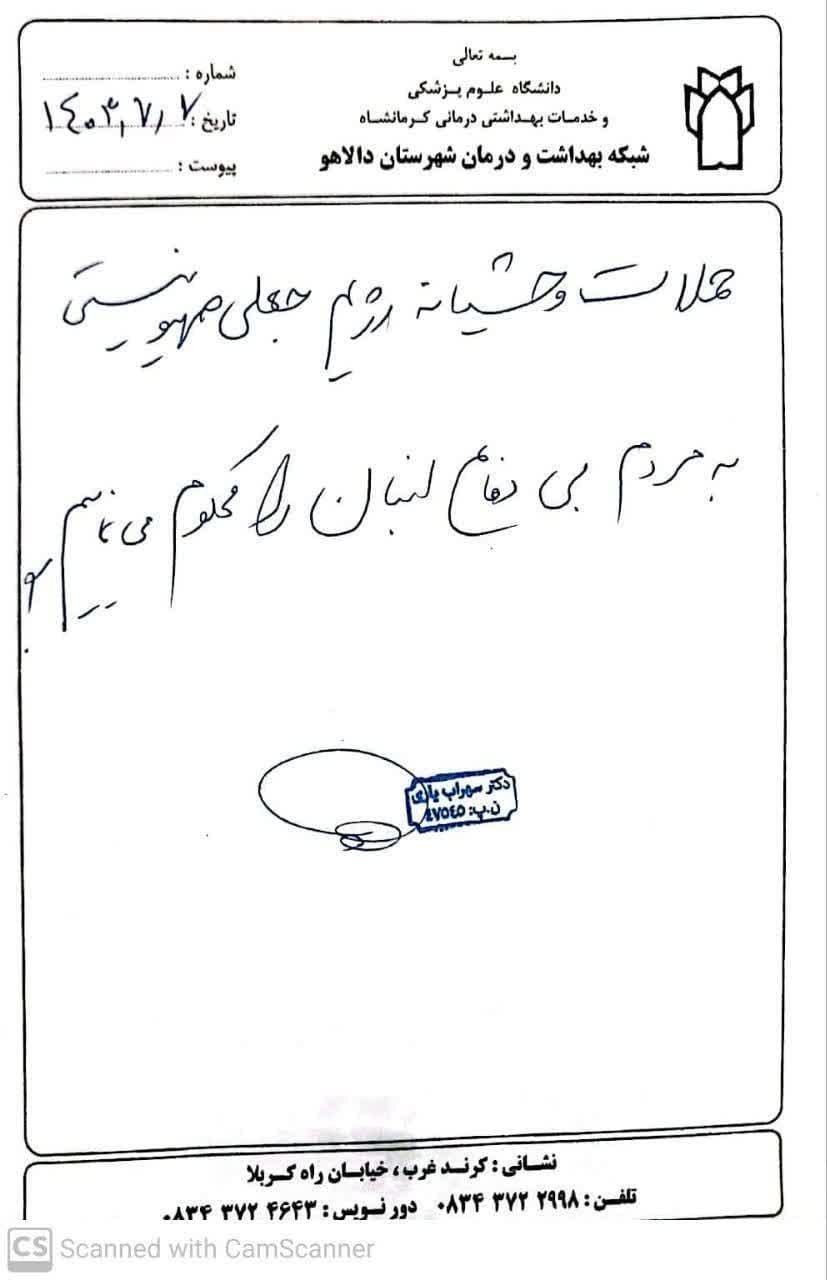 بسمه تعالی
دانشگاه علوم پزشکی
و خدمات بهداشتی درمانی کرمانشاه
شبکه بهداشت و درمان شهرستان دالاهو
شماره :
تاریخ : ۱۴۰۳,۷,۷
پیوست :
حملات وحشیانه رژیم جعلی صهیونیستی
به مردم بی دفاع لبنان را محکوم می نماییم
دکتر سهراب یاری
ن.پ: ٤٧٥٤٥
نشانی : کرند غرب ، خیابان راه کربلا
تلفن : ۲۹۹۸ ۳۷۲ ۰۸۳۴ دورنویس : ۴۶۴۳ ۳۷۲ ۰۸۳۴
CS Scanned with CamScanner